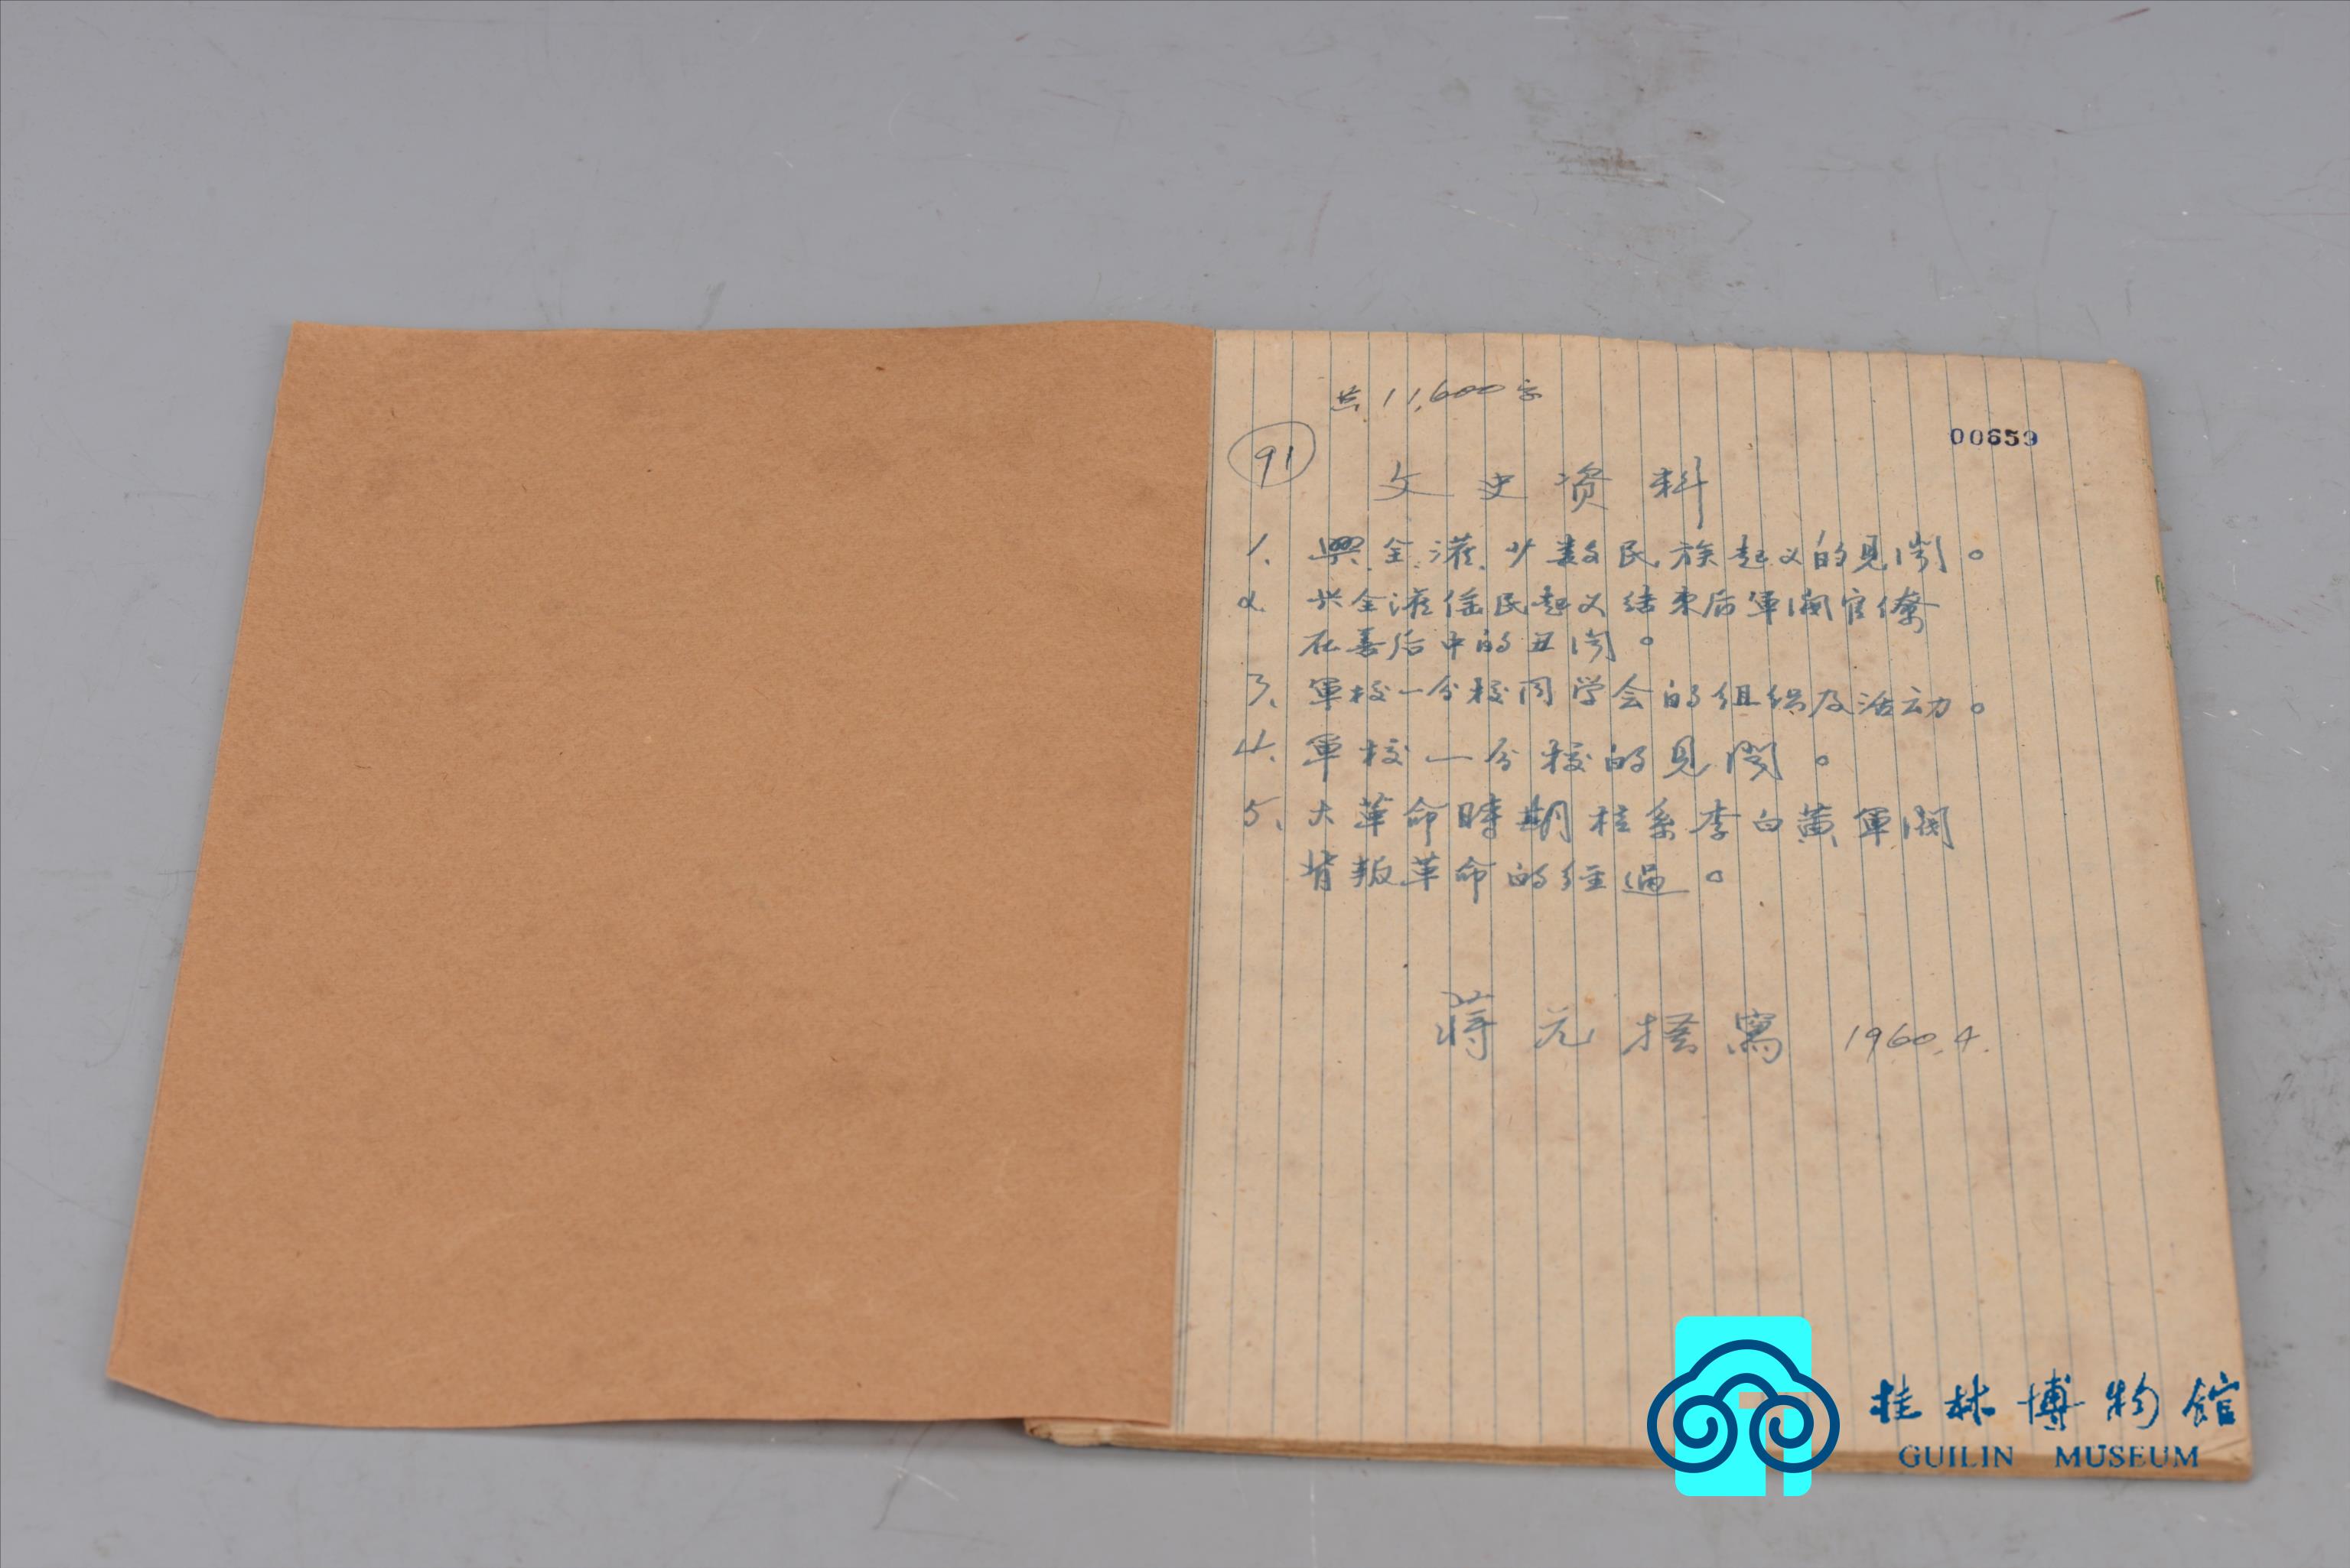 共11,600字
91
00659
文史资料
1、興、全、灌、少数民族起义的见闻。
2. 兴全灌傜民起义结束后軍阀官僚
在善后中的丑闻。
3、軍校一分校同学会的组织及活动。
4、軍校一分校的见闻。
5、大革命時期桂系李白黄軍阀
背叛革命的经過。
蒋元 寫 1960.4.
桂林博物館
GUILIN MUSEUM